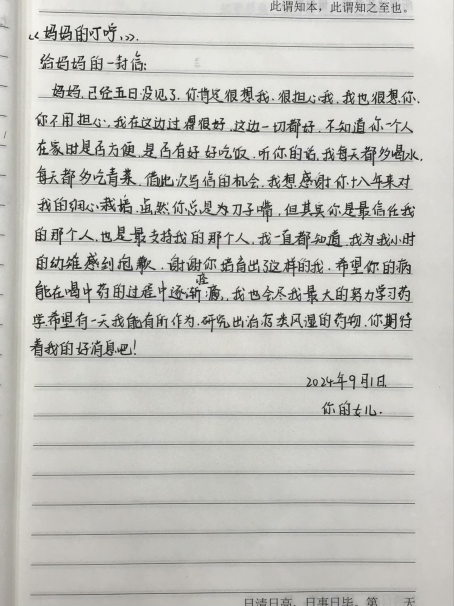 此谓知本，此谓知之至也。
《妈妈的叮咛》
给妈妈的一封信:
妈妈,已经五日没见了,你肯定很想我,很担心我,我也很想你,
你不用担心,我在这边过得很好,这边一切都好,不知道你一个人
在家时是否方便,是否有好好吃饭,听你的话,我每天都多喝水,
每天都多吃青菜,借此次写信的机会,我想感谢你十八年来对
我的细心栽培,虽然你总是刀子嘴,但其实你是最信任我
的那个人,也是最支持我的那个人,我一直都知道,我为我小时
的幼稚感到抱歉,谢谢你培育出了这样的我,希望你的病
能在喝中药的过程中逐渐痊愈,我也会尽我最大的努力学习药
学,希望有一天我能有所作为,研究出治疗类风湿的药物,你期待
着我的好消息吧!
2024年9月1日
你的女儿.
日清日高，日事日毕。第 天